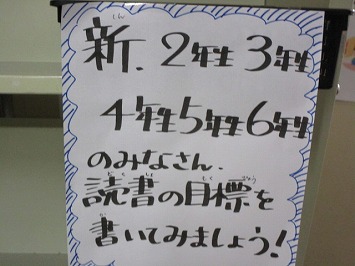 新.2年生 3年生
4年生5年生6年生
のみなさん、
読書の目標を
書いてみましょう!